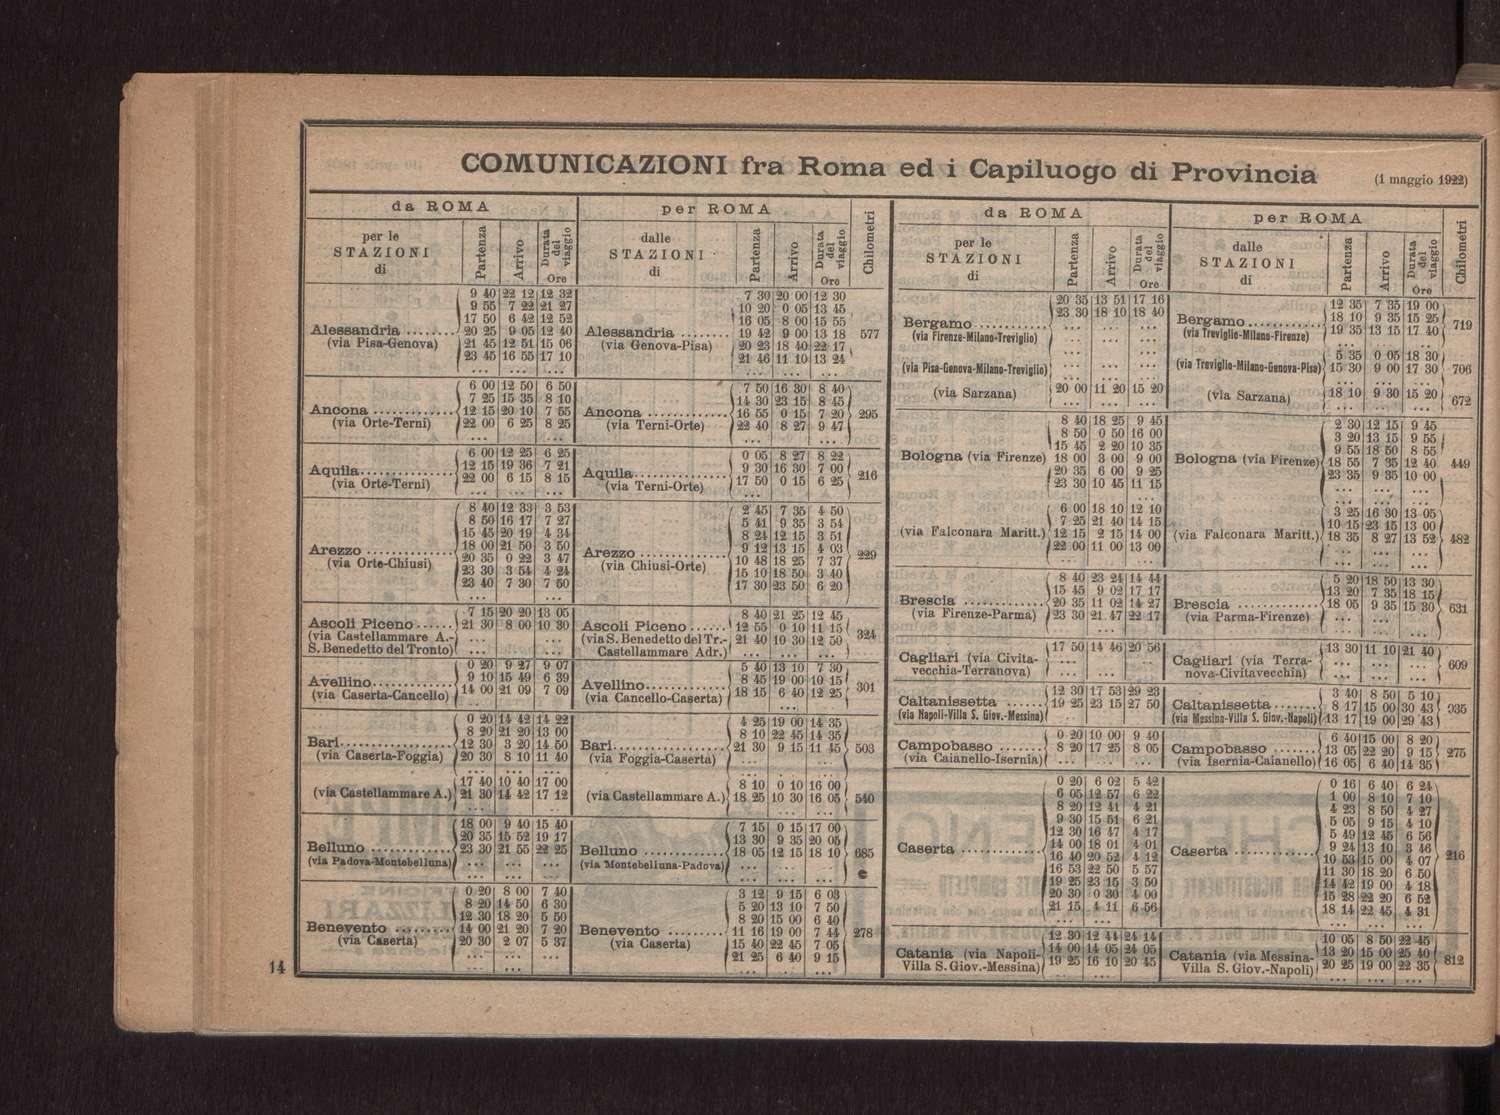 COMUNICAZIONI fra Roma ed i Capiluogo di Provincia (1 maggio 1922)
da ROMA
per le STAZIONI di
Partenza Arrivo Durata del viaggio Ore
per ROMA
dalle STAZIONI di
Partenza Arrivo Durata del viaggio Ore
Chilometri
Alessandria ........ (via Pisa-Genova)
9 40 22 12 12 32
9 55 7 22 21 27
17 50 6 42 12 52
20 25 9 05 12 40
21 45 12 51 15 06
23 45 16 55 17 10
... ... ...
Alessandria ........ (via Genova-Pisa) 577
7 30 20 00 12 30
10 20 0 05 13 45
16 05 8 00 15 55
19 42 9 00 13 18
20 23 18 40 22 17
21 46 11 10 13 24
... ... ...
Ancona ............ (via Orte-Terni)
6 00 12 50 6 50
7 25 15 35 8 10
12 15 20 10 7 55
22 00 6 25 8 25
... ... ...
Ancona ............ (via Terni-Orte) 295
7 50 16 30 8 40
14 30 23 15 8 45
16 55 0 15 7 20
22 40 8 27 9 47
... ... ...
Aquila.............. (via Orte-Terni)
6 00 12 25 6 25
12 15 19 36 7 21
22 00 6 15 8 15
... ... ...
Aquila.............. (via Terni-Orte) 216
0 05 8 27 8 22
9 30 16 30 7 00
17 50 0 15 6 25
... ... ...
Arezzo ............. (via Orte-Chiusi)
8 40 12 33 3 53
8 50 16 17 7 27
15 45 20 19 4 34
18 00 21 50 3 50
20 35 0 22 3 47
23 30 3 54 4 24
23 40 7 30 7 50
... ... ...
Arezzo ............. (via Chiusi-Orte) 229
2 45 7 35 4 50
5 41 9 35 3 54
8 24 12 15 3 51
9 12 13 15 4 03
10 48 18 25 7 37
15 10 18 50 3 40
17 30 23 50 6 20
... ... ...
Ascoli Piceno ...... (via Castellammare A.-S. Benedetto del Tronto)
7 15 20 20 13 05
21 30 8 00 10 30
... ... ...
... ... ...
Ascoli Piceno ...... (via S. Benedetto del Tr.-Castellammare Adr.) 324
8 40 21 25 12 45
12 55 0 10 11 15
21 40 10 30 12 50
... ... ...
Avellino............ (via Caserta-Cancello)
0 20 9 27 9 07
9 10 15 49 6 39
14 00 21 09 7 09
...
Avellino............ (via Cancello-Caserta) 301
5 40 13 10 7 30
8 45 19 00 10 15
18 15 6 40 12 25
...
Bari................. (via Caserta-Foggia)
0 20 14 42 14 22
8 20 21 20 13 00
12 30 3 20 14 50
20 30 8 10 11 40
... ... ...
Bari................. (via Foggia-Caserta) 503
4 25 19 00 14 35
8 10 22 45 14 35
21 30 9 15 11 45
... ... ...
(via Castellammare A.)
17 40 10 40 17 00
21 30 14 42 17 12
...
(via Castellammare A.) 540
8 10 0 10 16 00
18 25 10 30 16 05
... ... ...
Belluno ............ (via Padova-Montebelluna)
18 00 9 40 15 40
20 35 15 52 19 17
23 30 21 55 22 25
... ... ...
... ... ...
Belluno ............ (via Montebelluna-Padova) 685
7 15 0 15 17 00
13 30 9 35 20 05
18 05 12 15 18 10
... ... ...
... ... ...
Benevento ......... (via Caserta)
0 20 8 00 7 40
8 20 14 50 6 30
12 30 18 20 5 50
14 00 21 20 7 20
20 30 2 07 5 37
... ...
...
Benevento ......... (via Caserta) 278
3 12 9 15 6 03
5 20 13 10 7 50
8 20 15 00 6 40
11 16 19 00 7 44
15 40 22 45 7 05
21 25 6 40 9 15
... ... ...
da ROMA
per le STAZIONI di
Partenza Arrivo Durata del viaggio Ore
per ROMA
dalle STAZIONI di
Partenza Arrivo Durata del viaggio Ore
Chilometri
Bergamo ........... (via Firenze-Milano-Treviglio)
20 35 13 51 17 16
23 30 18 10 18 40
... ... ...
... ... ...
Bergamo............ (via Treviglio-Milano-Firenze) 719
12 35 7 35 19 00
18 10 9 35 15 25
19 35 13 15 17 40
(via Pisa-Genova-Milano-Treviglio)
... ... ...
... ... ...
(via Treviglio-Milano-Genova-Pisa) 706
5 35 0 05 18 30
15 30 9 00 17 30
... ... ...
(via Sarzana)
20 00 11 20 15 20
... ... ...
(via Sarzana) 672
18 10 9 30 15 20
... ... ...
Bologna (via Firenze)
8 40 18 25 9 45
8 50 0 50 16 00
15 45 2 20 10 35
18 00 3 00 9 00
20 35 6 00 9 25
23 30 10 45 11 15
...
Bologna (via Firenze) 449
2 30 12 15 9 45
3 20 13 15 9 55
9 55 18 50 8 55
18 55 7 35 12 40
23 35 9 35 10 00
... ... ...
... ... ...
(via Falconara Maritt.)
6 00 18 10 12 10
7 25 21 40 14 15
12 15 2 15 14 00
22 00 11 00 13 00
...
(via Falconara Maritt.) 482
3 25 16 30 13 05
10 15 23 15 13 00
18 35 8 27 13 52
... ... ...
... ... ...
Brescia ............. (via Firenze-Parma)
8 40 23 24 14 44
15 45 9 02 17 17
20 35 11 02 14 27
23 30 21 47 22 17
... ... ...
Brescia ............. (via Parma-Firenze) 631
5 20 18 50 13 30
13 20 7 35 18 15
18 05 9 35 15 30
... ... ...
Cagliari (via Civitavecchia-Terranova)
17 50 14 46 20 56
... ... ...
...
Cagliari (via Terranova-Civitavecchia) 609
13 30 11 10 21 40
... ... ...
Caltanissetta ....... (via Napoli-Villa S. Giov.-Messina)
12 30 17 53 29 23
19 25 23 15 27 50
...
Caltanissetta........ (via Messina-Villa S. Giov.-Napoli) 935
3 40 8 50 5 10
8 17 15 00 30 43
13 17 19 00 29 43
Campobasso ....... (via Caianello-Isernia)
0 20 10 00 9 40
8 20 17 25 8 05
... ... ...
Campobasso ....... (via Isernia-Caianello) 275
6 40 15 00 8 20
13 05 22 20 9 15
16 05 6 40 14 35
Caserta .............
0 20 6 02 5 42
6 05 12 57 6 22
8 20 12 41 4 21
9 30 15 51 6 21
12 30 16 47 4 17
14 00 18 01 4 01
16 40 20 52 4 12
16 53 22 50 5 57
19 25 23 15 3 50
20 30 0 30 4 00
21 15 4 11 6 56
... ...
Caserta ............. 216
0 16 6 40 6 24
1 00 8 10 7 10
4 23 8 50 4 27
5 05 9 15 4 10
5 49 12 45 6 56
9 24 13 10 3 46
10 53 15 00 4 07
11 30 18 20 6 50
14 42 19 00 4 18
15 28 22 20 6 52
18 14 22 45 4 31
... ... ...
Catania (via Napoli-Villa S. Giov.-Messina)
12 30 12 44 24 14
14 00 14 05 24 05
19 25 16 10 20 45
... ...
Catania (via Messina-Villa S. Giov.-Napoli) 812
10 05 8 50 22 45
13 20 15 00 25 40
20 25 19 00 22 35
... ... ...
14